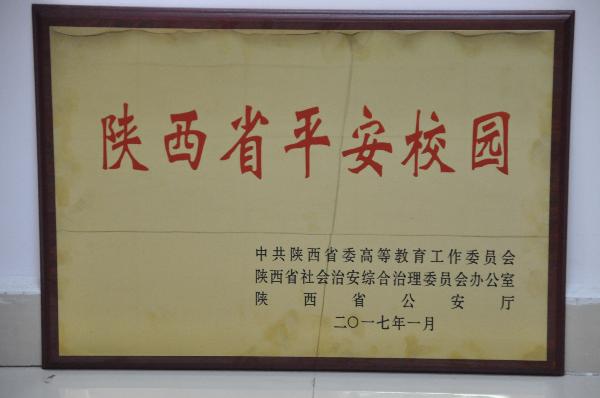 陕西省平安校园
中共陕西省委高等教育工作委员会
陕西省社会治安综合治理委员会办公室
陕西省公安厅
二〇一七年一月